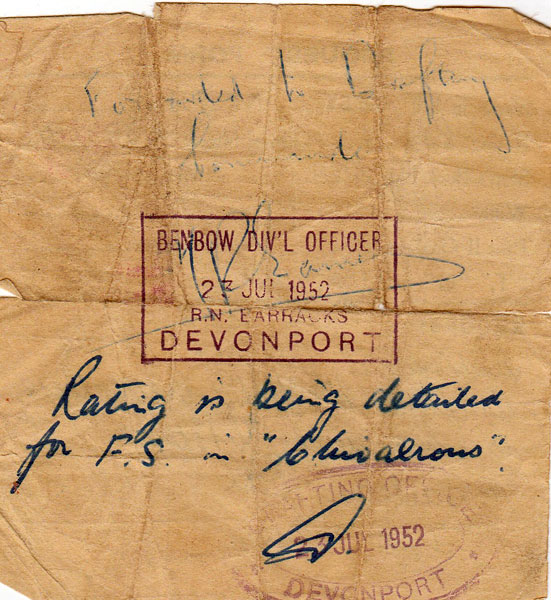 Forwarded to Drafting
Commander
BENBOW DIV'L OFFICER
23 JUL 1952
R.N. BARRACKS
DEVONPORT
Rating is being detailed
for F.S. in "Chivalrous".
DRAFTING OFFICE
23 JUL 1952
DEVONPORT